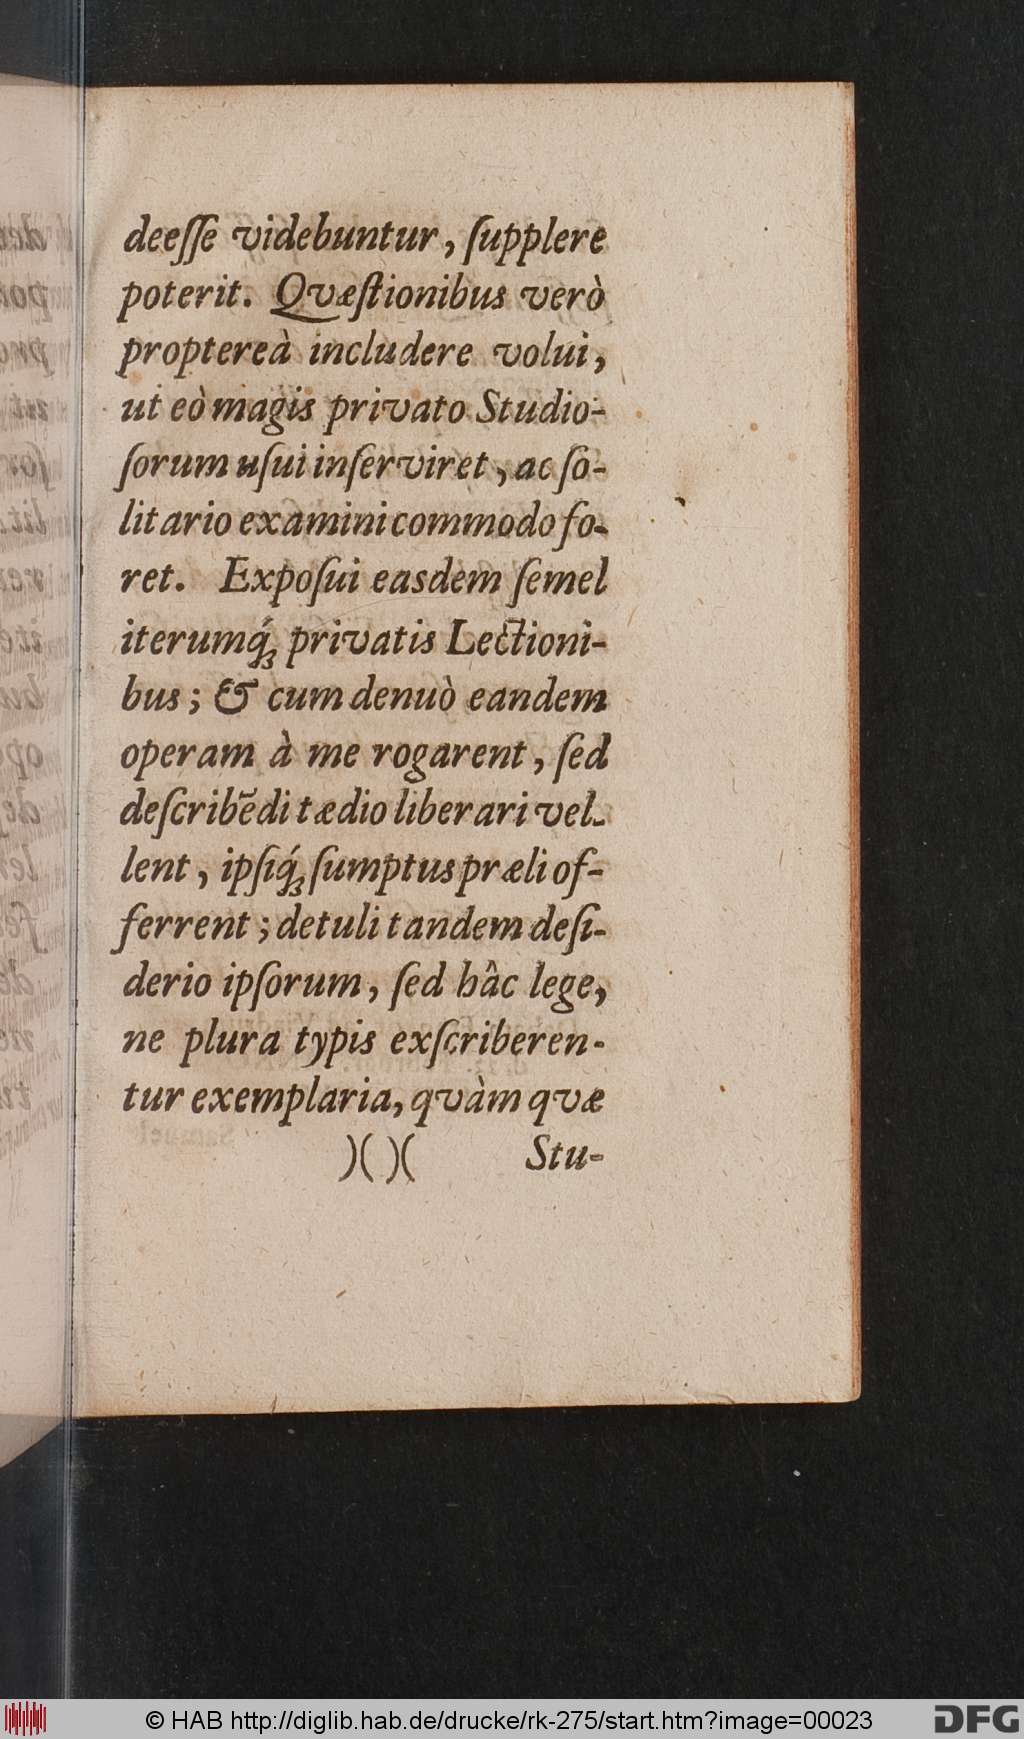 deeſſe videbuntur, ſupplere
poterit. Qvæſtionibus verò
proptereà includere volui,
ut eò magis privato Studio-
ſorum uſui inſerviret, ac ſo-
litario examini commodo fo-
ret. Expoſui easdem ſemel
iterumq́ꝫ privatis Lectioni-
bus; & cum denuò eandem
operam à me rogarent, ſed
deſcribẽdi tædio liberari vel-
lent, ipſiq́ꝫ ſumptus præli of-
ferrent; detuli tandem deſi-
derio ipſorum, ſed hâc lege,
ne plura typis exſcriberen-
tur exemplaria, qvàm qvæ
)( )( Stu-
© HAB http://diglib.hab.de/drucke/rk-275/start.htm?image=00023
DFG